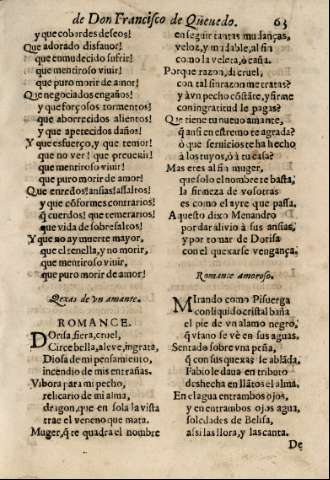 de Don Francisco de Queuedo. 63
y que cobordes deseos!
Que adorado disfauor!
que enmudecido sufrir!
que mentiroso viuir!
que puro morir de amor!
Que negociados engaños!
y que forçosos tormentos!
que aborrecidos alientos!
y que apetecidos daños!
Y que esfuerço, y que temor!
que no ver! que preuenir!
que mentiroso viuir!
que puro morir de amor!
Que enredos! ansias! assaltos!
y que cõformes contrarios!
q̃ cuerdos! que temerarios!
que vida de sobresaltos!
Y que no ay muerte mayor,
que el tenella, y no morir,
que mentiroso viuir,
que puro morir de amor!
Qexas de vn amante.
ROMANCE.
Dorisa, fiera, cruel,
Circe bella, aleue, ingrata,
Diosa de mi pensamiento,
incendio de mis entrañas.
Vibora para mi pecho,
relicario de mi alma,
dragon, que en sola la vista
trae el veneno que mata.
Muger, q̃ te quadra el nombre
en seguir tantas mudanças,
veloz, y mudable, al fin
como la veleta, ò caña.
Porque razon, di cruel,
con tal sinrazon me tratas?
y à vn pecho cõstãte, y firme
con ingratitud le pagas?
Que tiene tu nueuo amante,
q̃ ansi en estremo te agrada?
ò que seruicios te ha hecho
à los tuyos, ò à tu casa?
Mas eres al fin muger,
que solo el nombre te basta,
la firmeza de vosotras
es como el ayre que passa.
Aquesto dixo Menandro
por dar aliuio à sus ansias,
y por tomar de Dorisa
con el quexarse vengança.
Romance amoroso.
Mirando como Pisuerga
con liquido cristal baña
el pie de vn alamo negro,
q̃ vfano se vè en sus aguas.
Sentado sobre vna peña,
q̃ con sus quexas se ablãda,
Fabio le daua en tributo
deshecha en llãtos el alma.
En el agua entrambos ojos,
y en entrambos ojos agua,
soledades de Belisa,
assi las llora, y las canta.
De